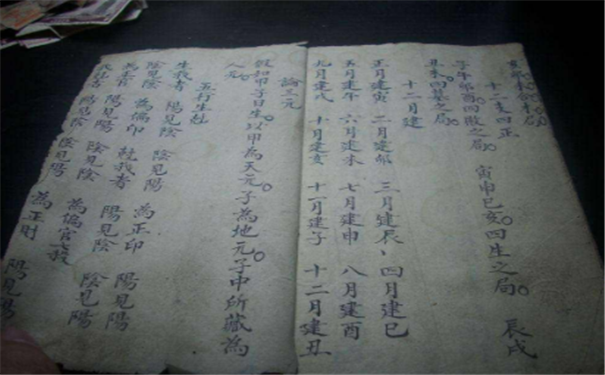 十二支四正
子午卯酉。四敗之局。 寅申巳亥。四生之局。 辰戌
丑未。四墓之局。
十二月建
正月建寅 二月建卯 三月建辰、四月建巳
五月建午 六月建未 七月建申 八月建酉
九月建戌 十月建亥 十一月建子 十二月建丑
論三元
假如甲子日生。以甲為天元。子為地元。子中所藏為
人元。
五行生尅
生我者 陽見陰 陰見陽 為正印 陽見陽
陰見陰 為偏印 尅我者 陽見陰 陰見陽
陽見陽 陰見陰 為偏官七殺
陽見陰 陰見陽 為正財 陽見陽